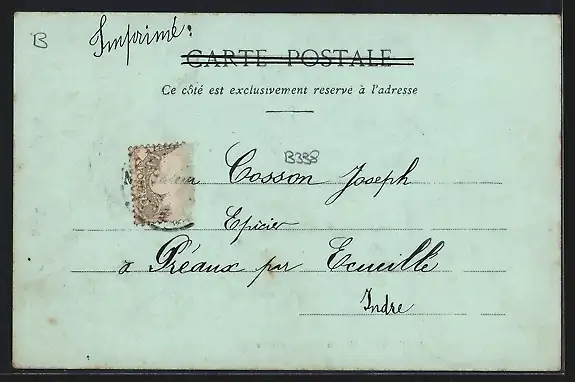 B
Imprimé:
CARTE POSTALE
Ce côté est exclusivement reservé à l'adresse
B398
Cosson Joseph
Epicier
à Préaux par Ecueillé
Indre